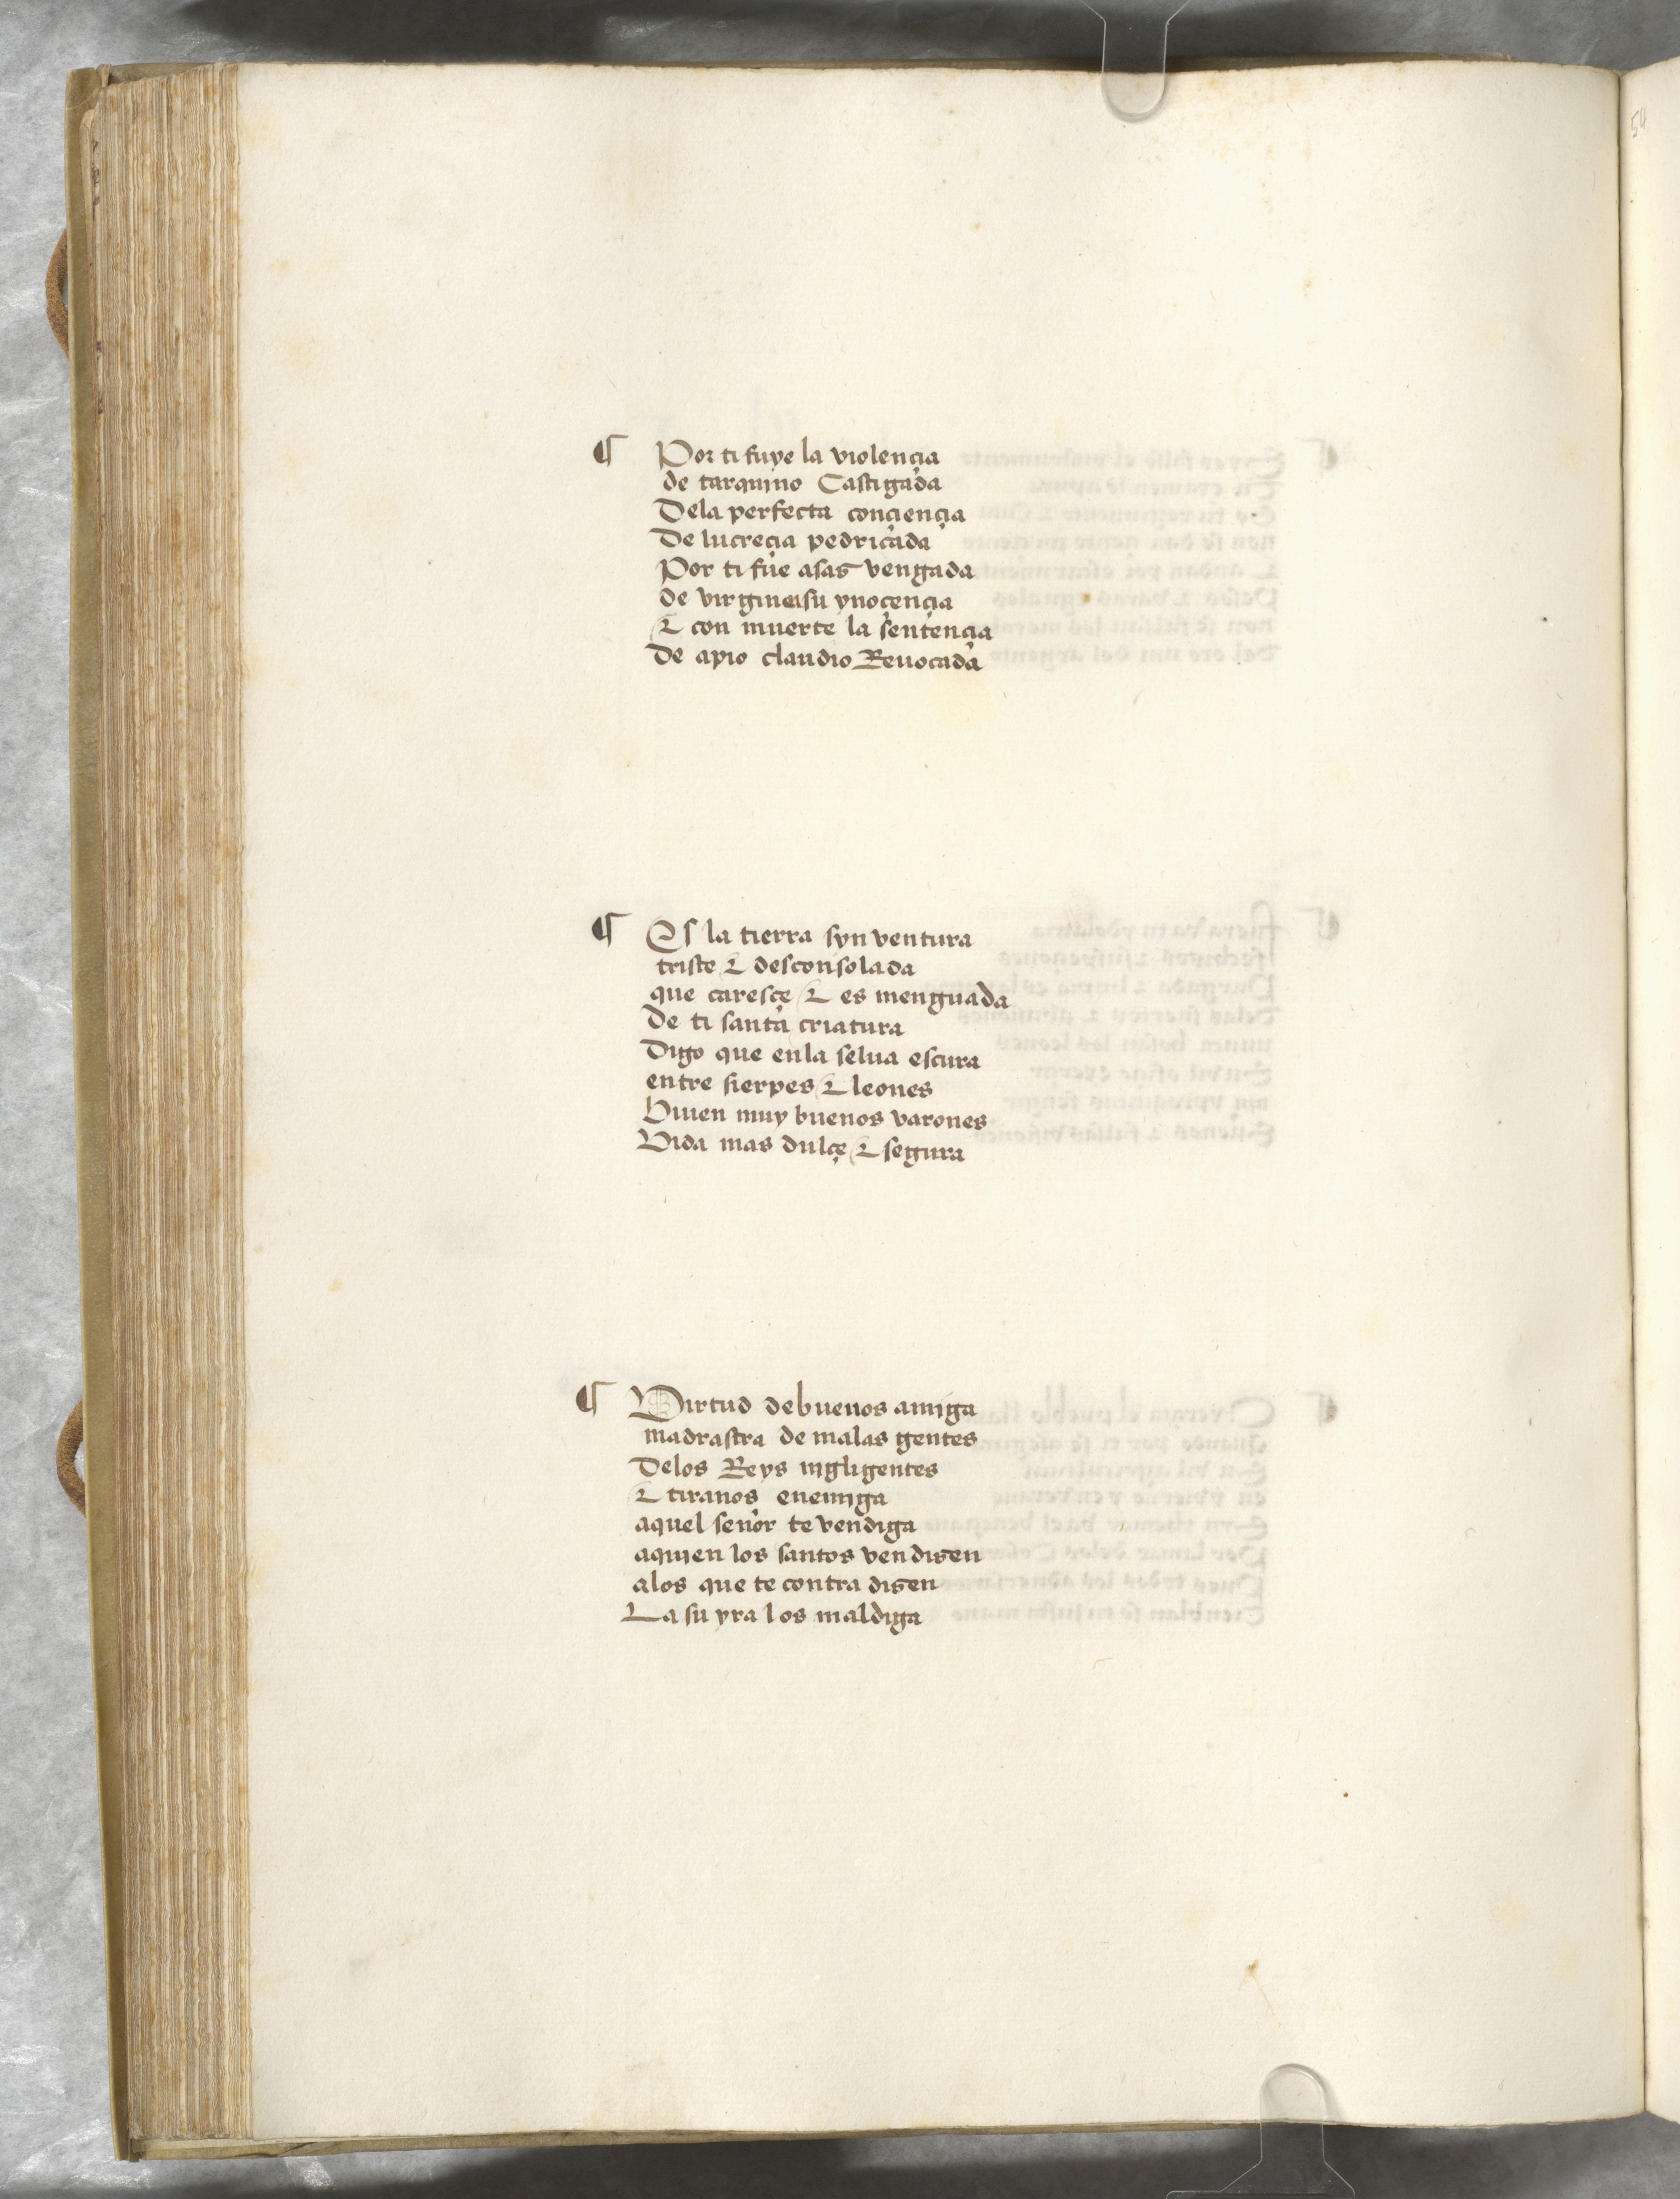 ¶ Por ti fuye la violençia
de tarquino Castigada
Dela perfecta conçiençia
De lucreçia pedricada
Por ti fue asas vengada
de virginea su ynoçençia
& con muerte la sentençia
De apio claudio Reuocada
¶ Es la tierra syn ventura
triste & desconsolada
que caresçe & es menguada
De ti santa criatura
Digo que enla selua escura
entre sierpes & leones
Biuen muy buenos varones
Vida mas dulçe & segura
¶ Virtud debuenos amiga
madrastra de malas gentes
Delos Reys nigligentes
& tiranos enemiga
aquel señor te vendiga
aquien los santos vendizen
alos que te contra dizen
La su yra los maldiga
54